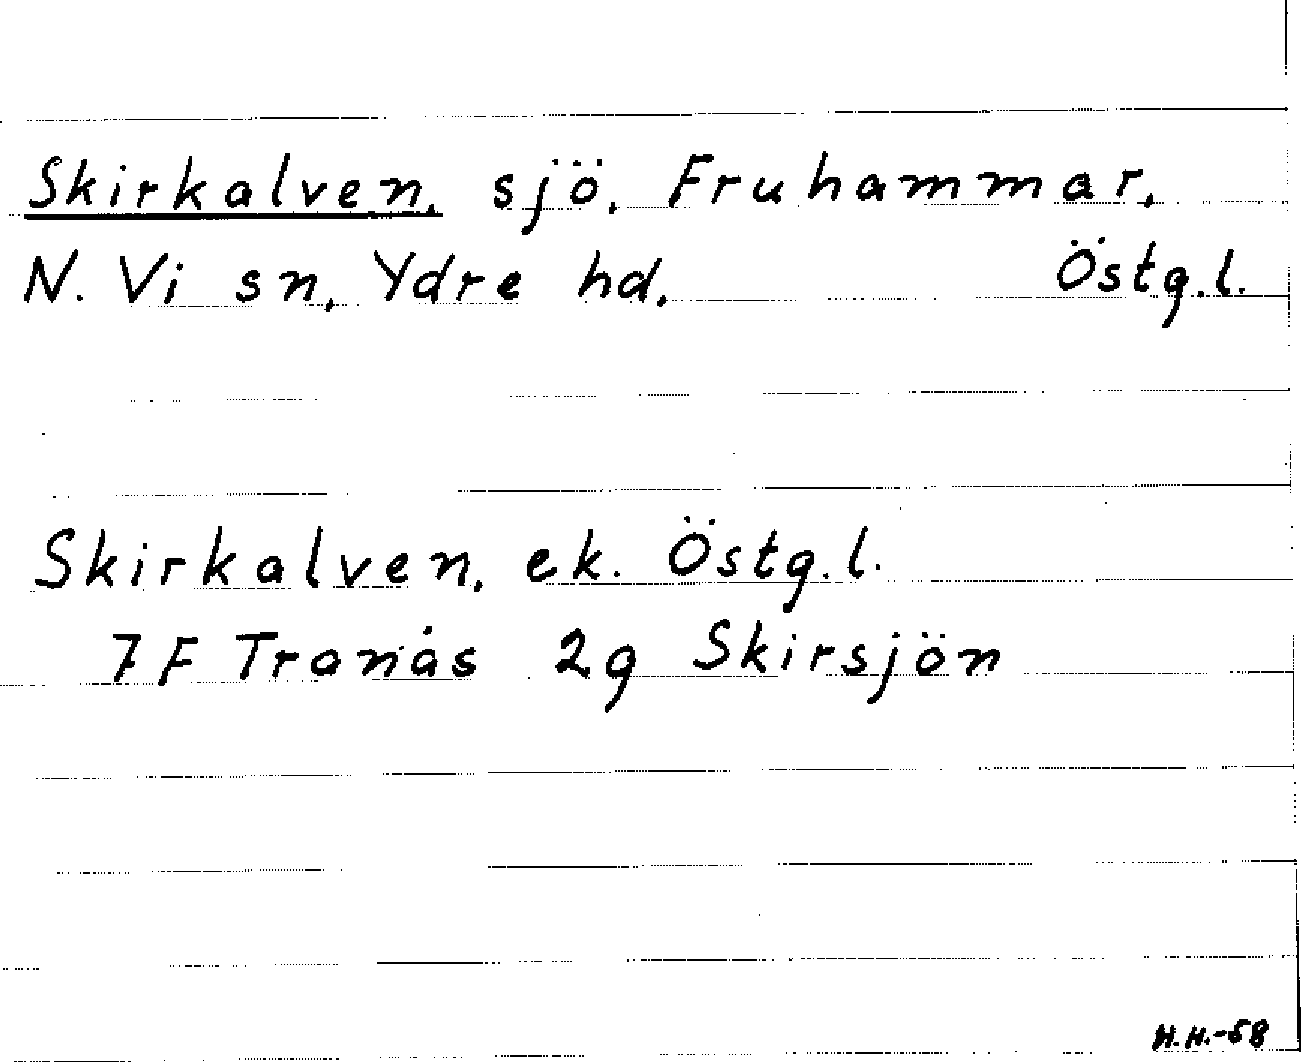 Skirkalven, sjö, Fruhammar,
N. Vi sn, Ydre hd, Östg.l.
Skirkalven, ek. Östg.l.
7 F Tranås 2g Skirsjön
H.H.-58